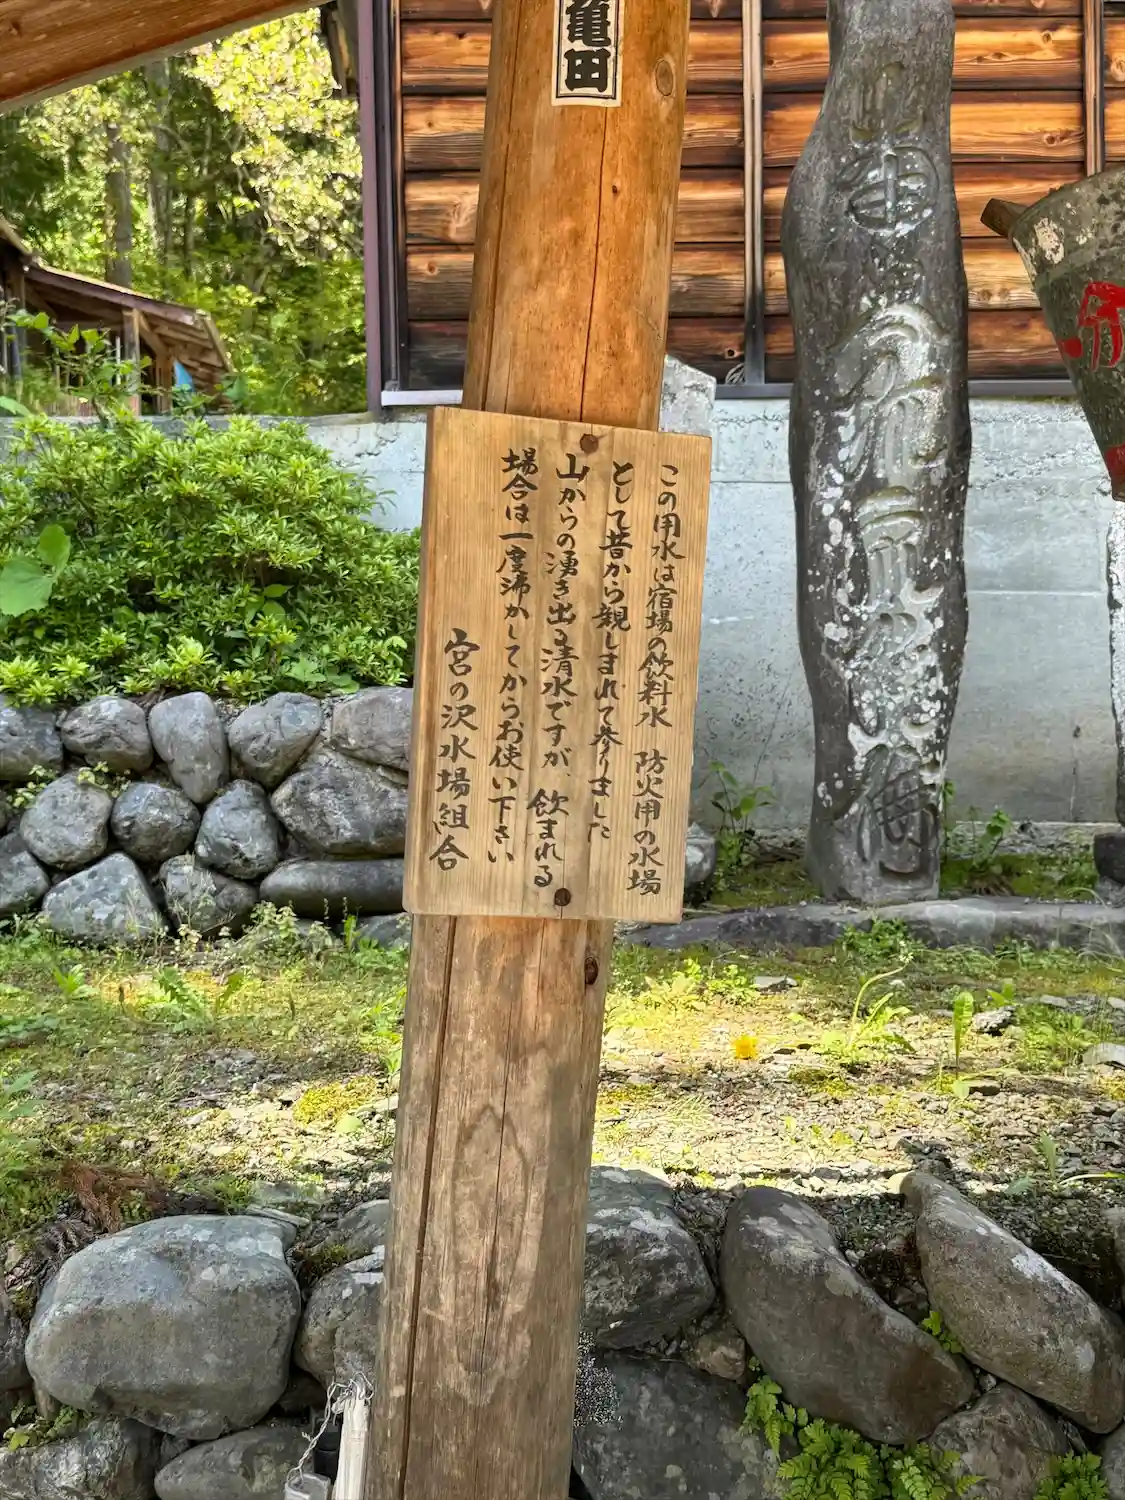 亀田
この用水は宿場の飲料水 防火用の水場
として昔から親しまれて参りました
山からの湧き出る清水ですが、飲まれる
場合は一度沸かしてからお使い下さい
宮の沢水場組合